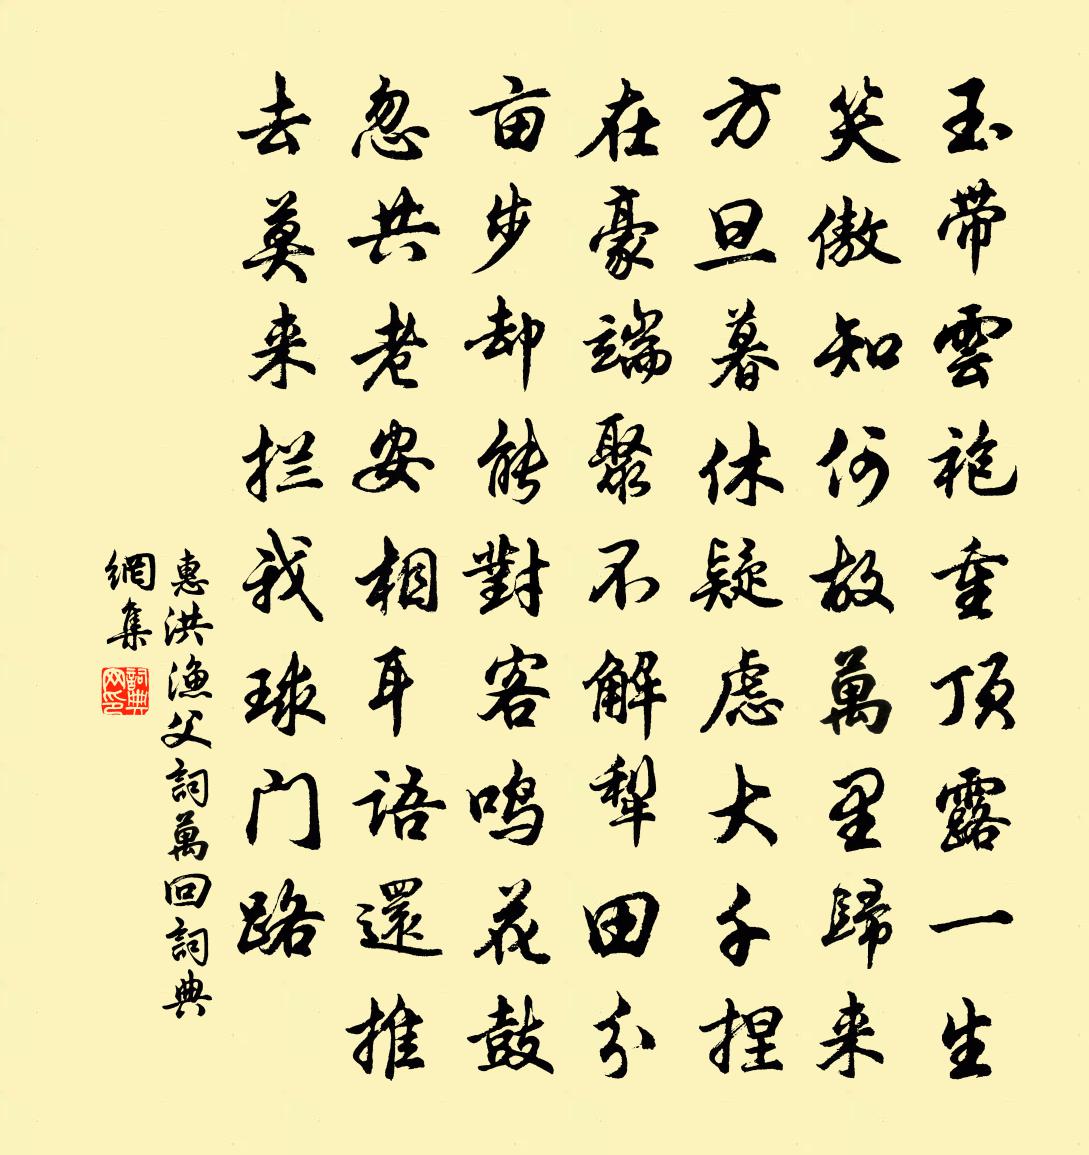 玉带雲袍童顶露一生
笑傲知何故萬里歸来
方旦暮休疑虑大千捏
在豪端聚不解犁田分
亩步却能對客鸣花鼓
忽共老安相耳語還推
去莫来拦我毬门路
惠洪渔父詞萬回詞典
網集
詞典網印